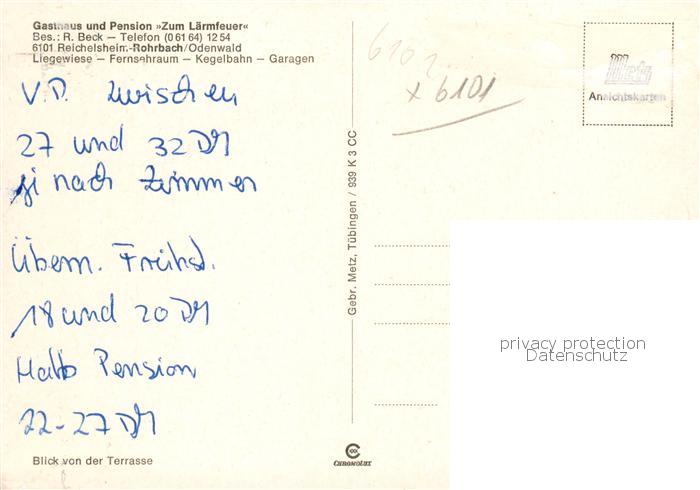 Gasthaus und Pension »Zum Lärmfeuer«
Bes.: R. Beck — Telefon (0 61 64) 12 54
6101 Reichelsheim-Rohrbach/Odenwald
Liegewiese — Fernsehraum — Kegelbahn — Garagen
V.P. zwischen
27 und 32 DM
je nach Zimmer
Übern. Frühst.
18 und 20 DM
Halb Pension
22-27 DM
Blick von der Terrasse
Gebr. Metz, Tübingen / 939 K 3 CC
CHROMOLUX
6101
x 6101
Metz
Ansichtskarten
privacy protection
Datenschutz